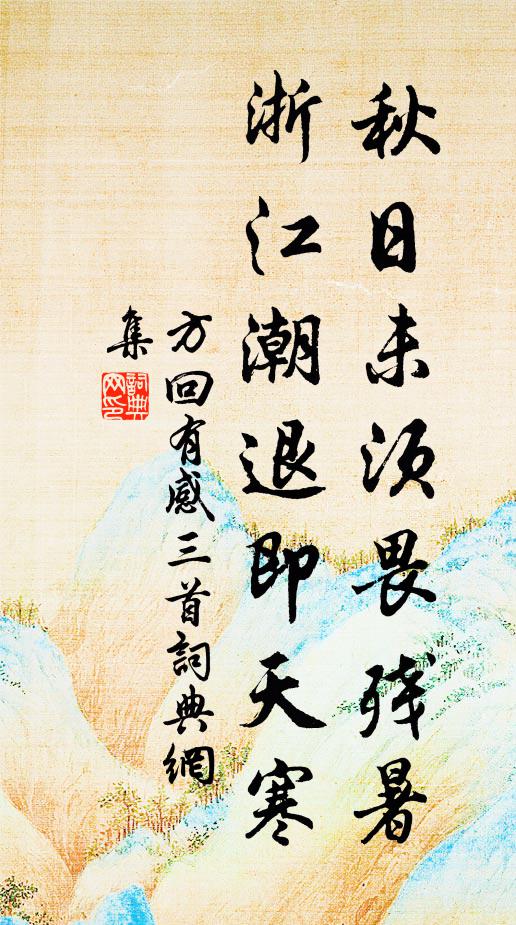 秋日未须畏残暑
浙江潮退即天寒
方回有感三首詞典網
集
詞典網印